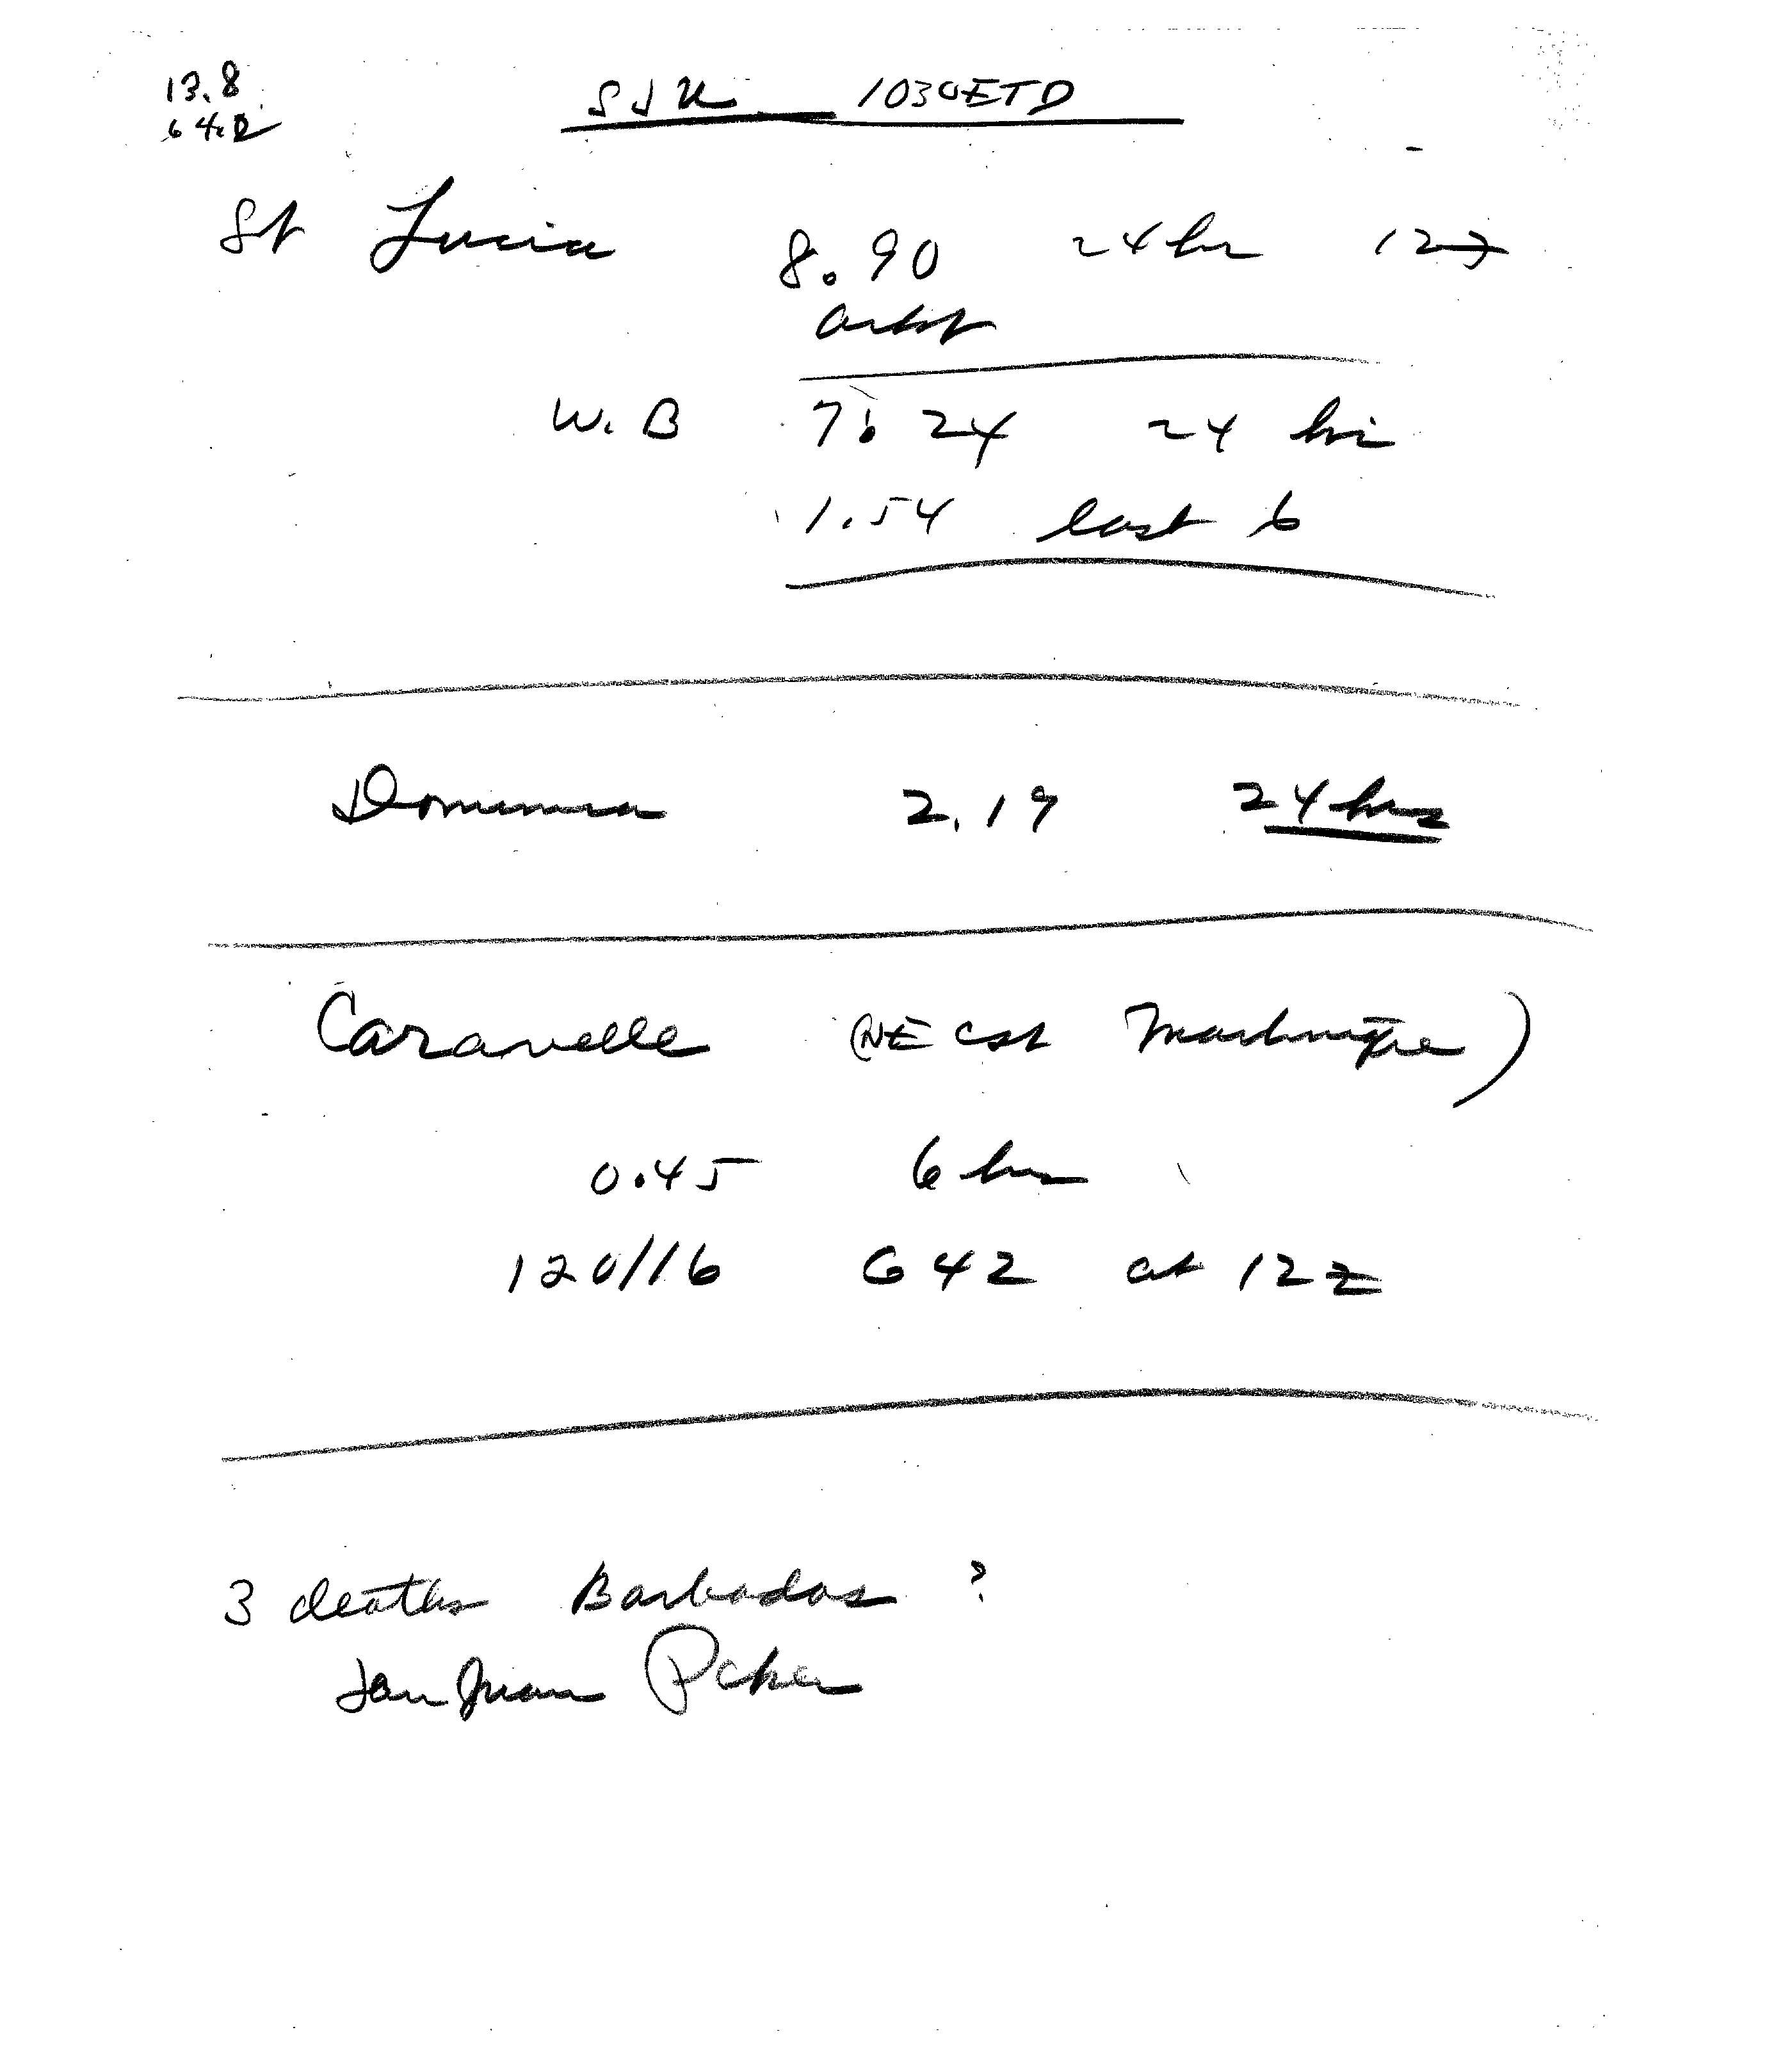 13.8
64.2
SJU 1030 ETD
St Lucia 8.90 24 hr 12Z
W. B 7.24 24 hr
1.54 last 6
Dominica 2.19 24 hrs
Caravelle (NE cst Martinique)
0.45 6 hr
120/16 G42 at 12Z
3 deaths Barbados ?
San Juan